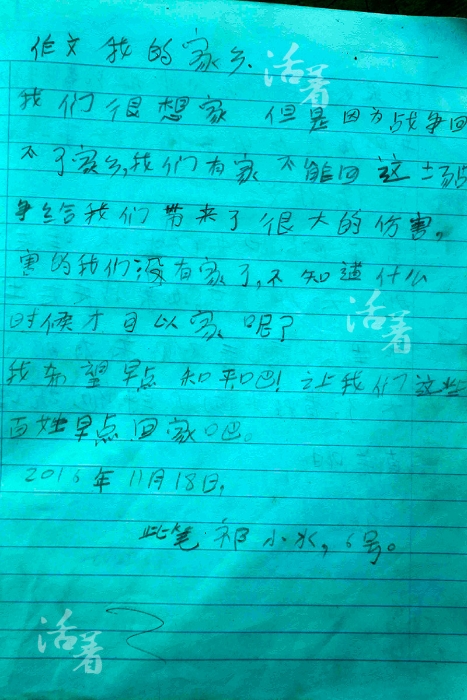 作文 我的家乡.
活着
我们很想家 但是因为战争回
不了家乡,我们有家不能回 这土场战
争给我们带来了很大的伤害,
害的我们没有家了,不知道什么
活着
时候才目以家呢了
我希望早点知和吧!让我们这些
百姓早点回家吧。
2016年11月18日,
此笔 祁小水, 6号。
活着